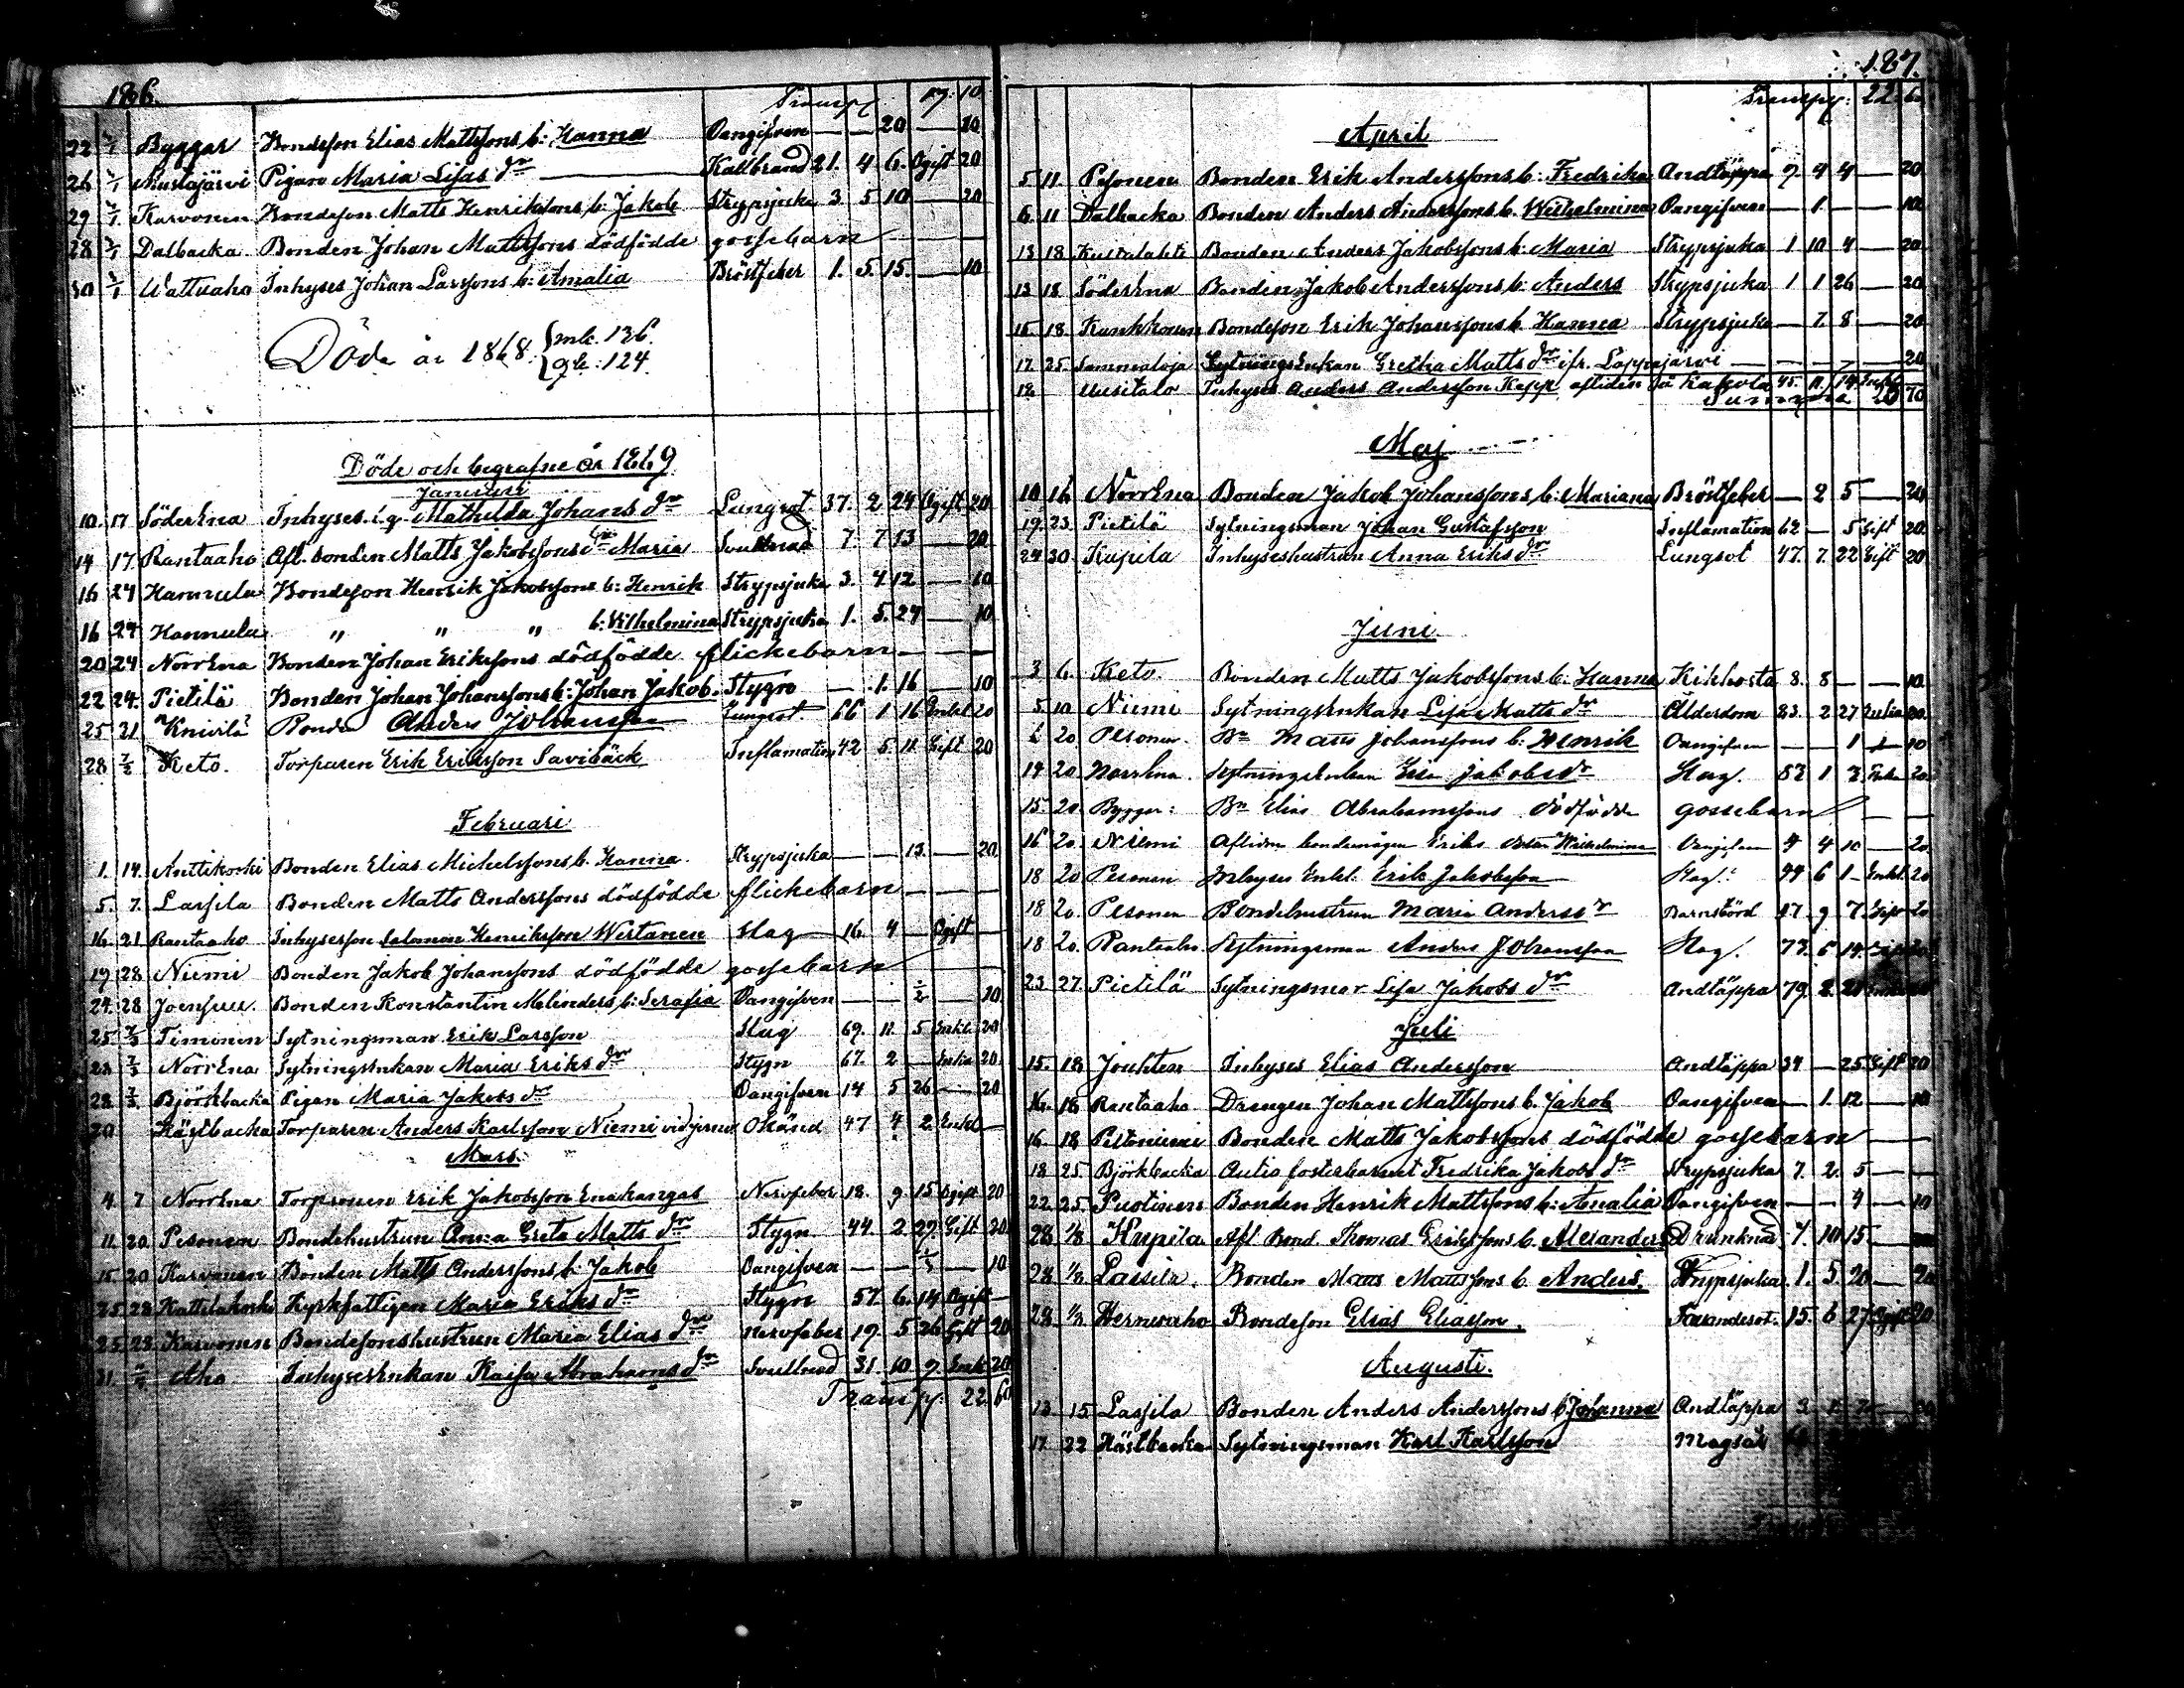 186.
Transp 19. 10
22 3/1 Byggar Bondeson Elias Mattssons b: Hanna Oangifven — — 20 — 10
26 3/1 Mustajärvi Pigan Maria Lisas dr Kallbrand 21. 4 6. Ogift 20
29 3/1 Karvonen Bondeson Matts Henrikssons b: Jakob Strypsjuka 3 5 10 — 20
28 3/1 Dalbacka Bonden Johan Mattssons dödfödde gossebarn — — —
30 3/1 Wattuaho Inhyses Johan Larssons b: Amalia Bröstfeber 1. 5. 15. — 10
Döde år 1868. mk. 136.
qk: 124.
Döde och begrafne år 1869
Januari
10. 17 Söderena Inhyses. i. q. Mathilda Johans dr Lungsot 37. 2 24 Ogift 20
14 17 Rantaaho Afl. bonden Matts Jakobssons dr Maria Svullnad 7. 7 13 — 20
16 24 Hannula Bondeson Henrik Jakobssons b: Henrik Strypsjuka 3. 4 12 — 10
16 24 Hannula " " " b: Vilhelmina Strypsjuka 1. 5. 24 — 10
20 24 Norrena Bonden Johan Erikssons dödfödde flickebarn — —
22 24. Pietilä Bonden Johan Johanssons b: Johan Jakob. Stygn — 1. 16 — 10
25 31 Knivilä Bonden Anders Johansson Lungsot. 66 1 16 Enkl 20
28 7/2 Keto. Torparen Erik Eriksson Savibäck Inflamation 42 5. 11. Gift 20
Februari
1. 14. Anttikoski Bonden Elias Michelssons b. Hanna Strypsjuka — — 13. — 20
5. 7. Lassila Bonden Matts Anderssons dödfödde flickebarn — — —
16. 21 Rantaaho Inhyseson Salomon Henriksson Wirtanen Slag — 16. 4 — Ogift —
19 28 Niemi Bonden Jakob Johanssons dödfödde gossebarn
24. 28 Joensuu. Bonden Konstantin Melinders b: Serafia Oangifven — — 1/2 — 10
25. 7/3 Timonen Sytningsman Erik Larsson Slag 69. 11. 5 Enkl. 20
23 7/3 Norrena Sytningsenkan Maria Eriks dr Stygn 67. 2 — Enka 20.
28 7/3 Björkbacka Pigan Maria Jakobs dr Oangifven 14 5 26 — 20
20 Hästbacka Torparen Anders Karlsson Niemi Okänd 47 4 2 Enkl —
Mars.
4. 7 Norrena Torpsonen Erik Jakobsson Enakangas Nervfeber 18. 9 15 Ogift 20
11. 20 Pesonen Bondehustrun Anna Greta Matts dr Stygn 44. 2 27. Gift 20
15. 20 Karvonen Bonden Matts Anderssons b: Jakob Oangifven — — — 10
25. 28 Kattilakoski Kyrkfattigen Maria Eriks dr Stygn 57. 6. 14 Ogift —
25. 28. Karvonen Bondesonshustrun Maria Elias dr Nervfeber 19. 5 26 Gift 20
31. Aho Inhysesenkan Kaisa Abrahams dr Svullnad 31. 10 9. Enk 20
Transp: 22. 60
187.
Transp: 22. 60
April
5. 11. Pesonen Bonden Erik Anderssons b: Fredrika Andtäppa 9 4 4 — 20
6. 11 Dalbacka Bonden Anders Anderssons b. Wilhelmina Oangifven — 1. — — 10
13 18 Kustalahti Bonden Anders Jakobssons b: Maria Strypsjuka 1 10 4 — 20.
13 18 Söderena Bonden Jakob Anderssons b: Anders Strypsjuka 1 1 26 — 20
15. 18. Bondeson Erik Johanssons b. Hanna Strypsjuka — 7. 8 — 20
17. 25. Sammaloja Sytningsenkan Gretha Matts dr ifr. Lappajärvi — — — 20
12. Uusitalo Inhyses Anders Andersson Kepp afliden på Kakola 45. 11. 14
Summa 70
Maj
10 16 Norrena Bonden Jakob Johanssons b: Mariana Bröstfeber — 2 5 — 20
19. 23. Pietilä Sytningsman Johan Gustafsson Inflamation 62 — 5 Gift 20.
24 30 Kupila Inhyseshustrun Anna Eriks dr Lungsot 47. 7. 22 Gift 20
Juni
3 6. Keto. Bonden Matts Jakobssons b: Hanna Kikhosta 8. 8 — — 10.
5. 10 Niemi Sytningsenkan Lisa Matts dr Ålderdom 83. 2 27 Enka 20.
20 Pesonen. Bn Matts Johanssons b: Henrik Oangifven — — 1 10
14 20 Norrena. Sytningsenkan Lisa Jakobsdr Slag. 82 1 3 20.
15. 20. Byggar: Bn Elias Abrahamssons dödfödde gossebarn — —
16 20. Niemi Wilhelmina Oangifven 4 4 10 — 20
18 20 Pesonen Inhyses Enkl. Erik Jakobsson Slag. 44 6 1 — Enkl. 20
18 20 Pesonen Bondehustrun Maria Andersdr Barnsbörd 47 9 7 Gift 20
18 20. Rantaaho Sytningsman Anders Johansson Slag. 73. 5 14.
23 27. Pietilä Sytningsmor Lisa Jakobs dr Andtäppa 79. 2.
Juli
15. 18 Joukten Inhyses Elias Andersson Andtäppa 34 — 25 Gift 20
16. 18 Rantaaho Drengen Johan Mattssons b. Jakob Oangifven — 1. 12 — 10
16. 18 Pesoniemi Bonden Matts Jakobssons dödfödde gossebarn — —
18. 25. Björkbacka Autio fosterbarnet Fredrika Jakobs dr Strypsjuka 7. 2. 5 — —
22. 25. Puotinen Bonden Henrik Mattssons b: Amalia Oangifven — — 4 — 10
28 1/8 Kupila Afl. Bond. Thomas Erikssons b. Alexander Drunknad 7. 10 15 —
28 1/8 Lassila. Bonden Matts Mattssons b. Anders. Strypsjuka. 1. 5. 20 — 20
28. 1/8 Hernesaho Bondeson Elias Eliasson. 15. 6 27. Ogift 20
Augusti.
13. 15 Lassila Bonden Anders Anderssons b Johanna Andtäppa 3.
17. 22 Hästbacka Sytningsman Karl Karlsson Magsår